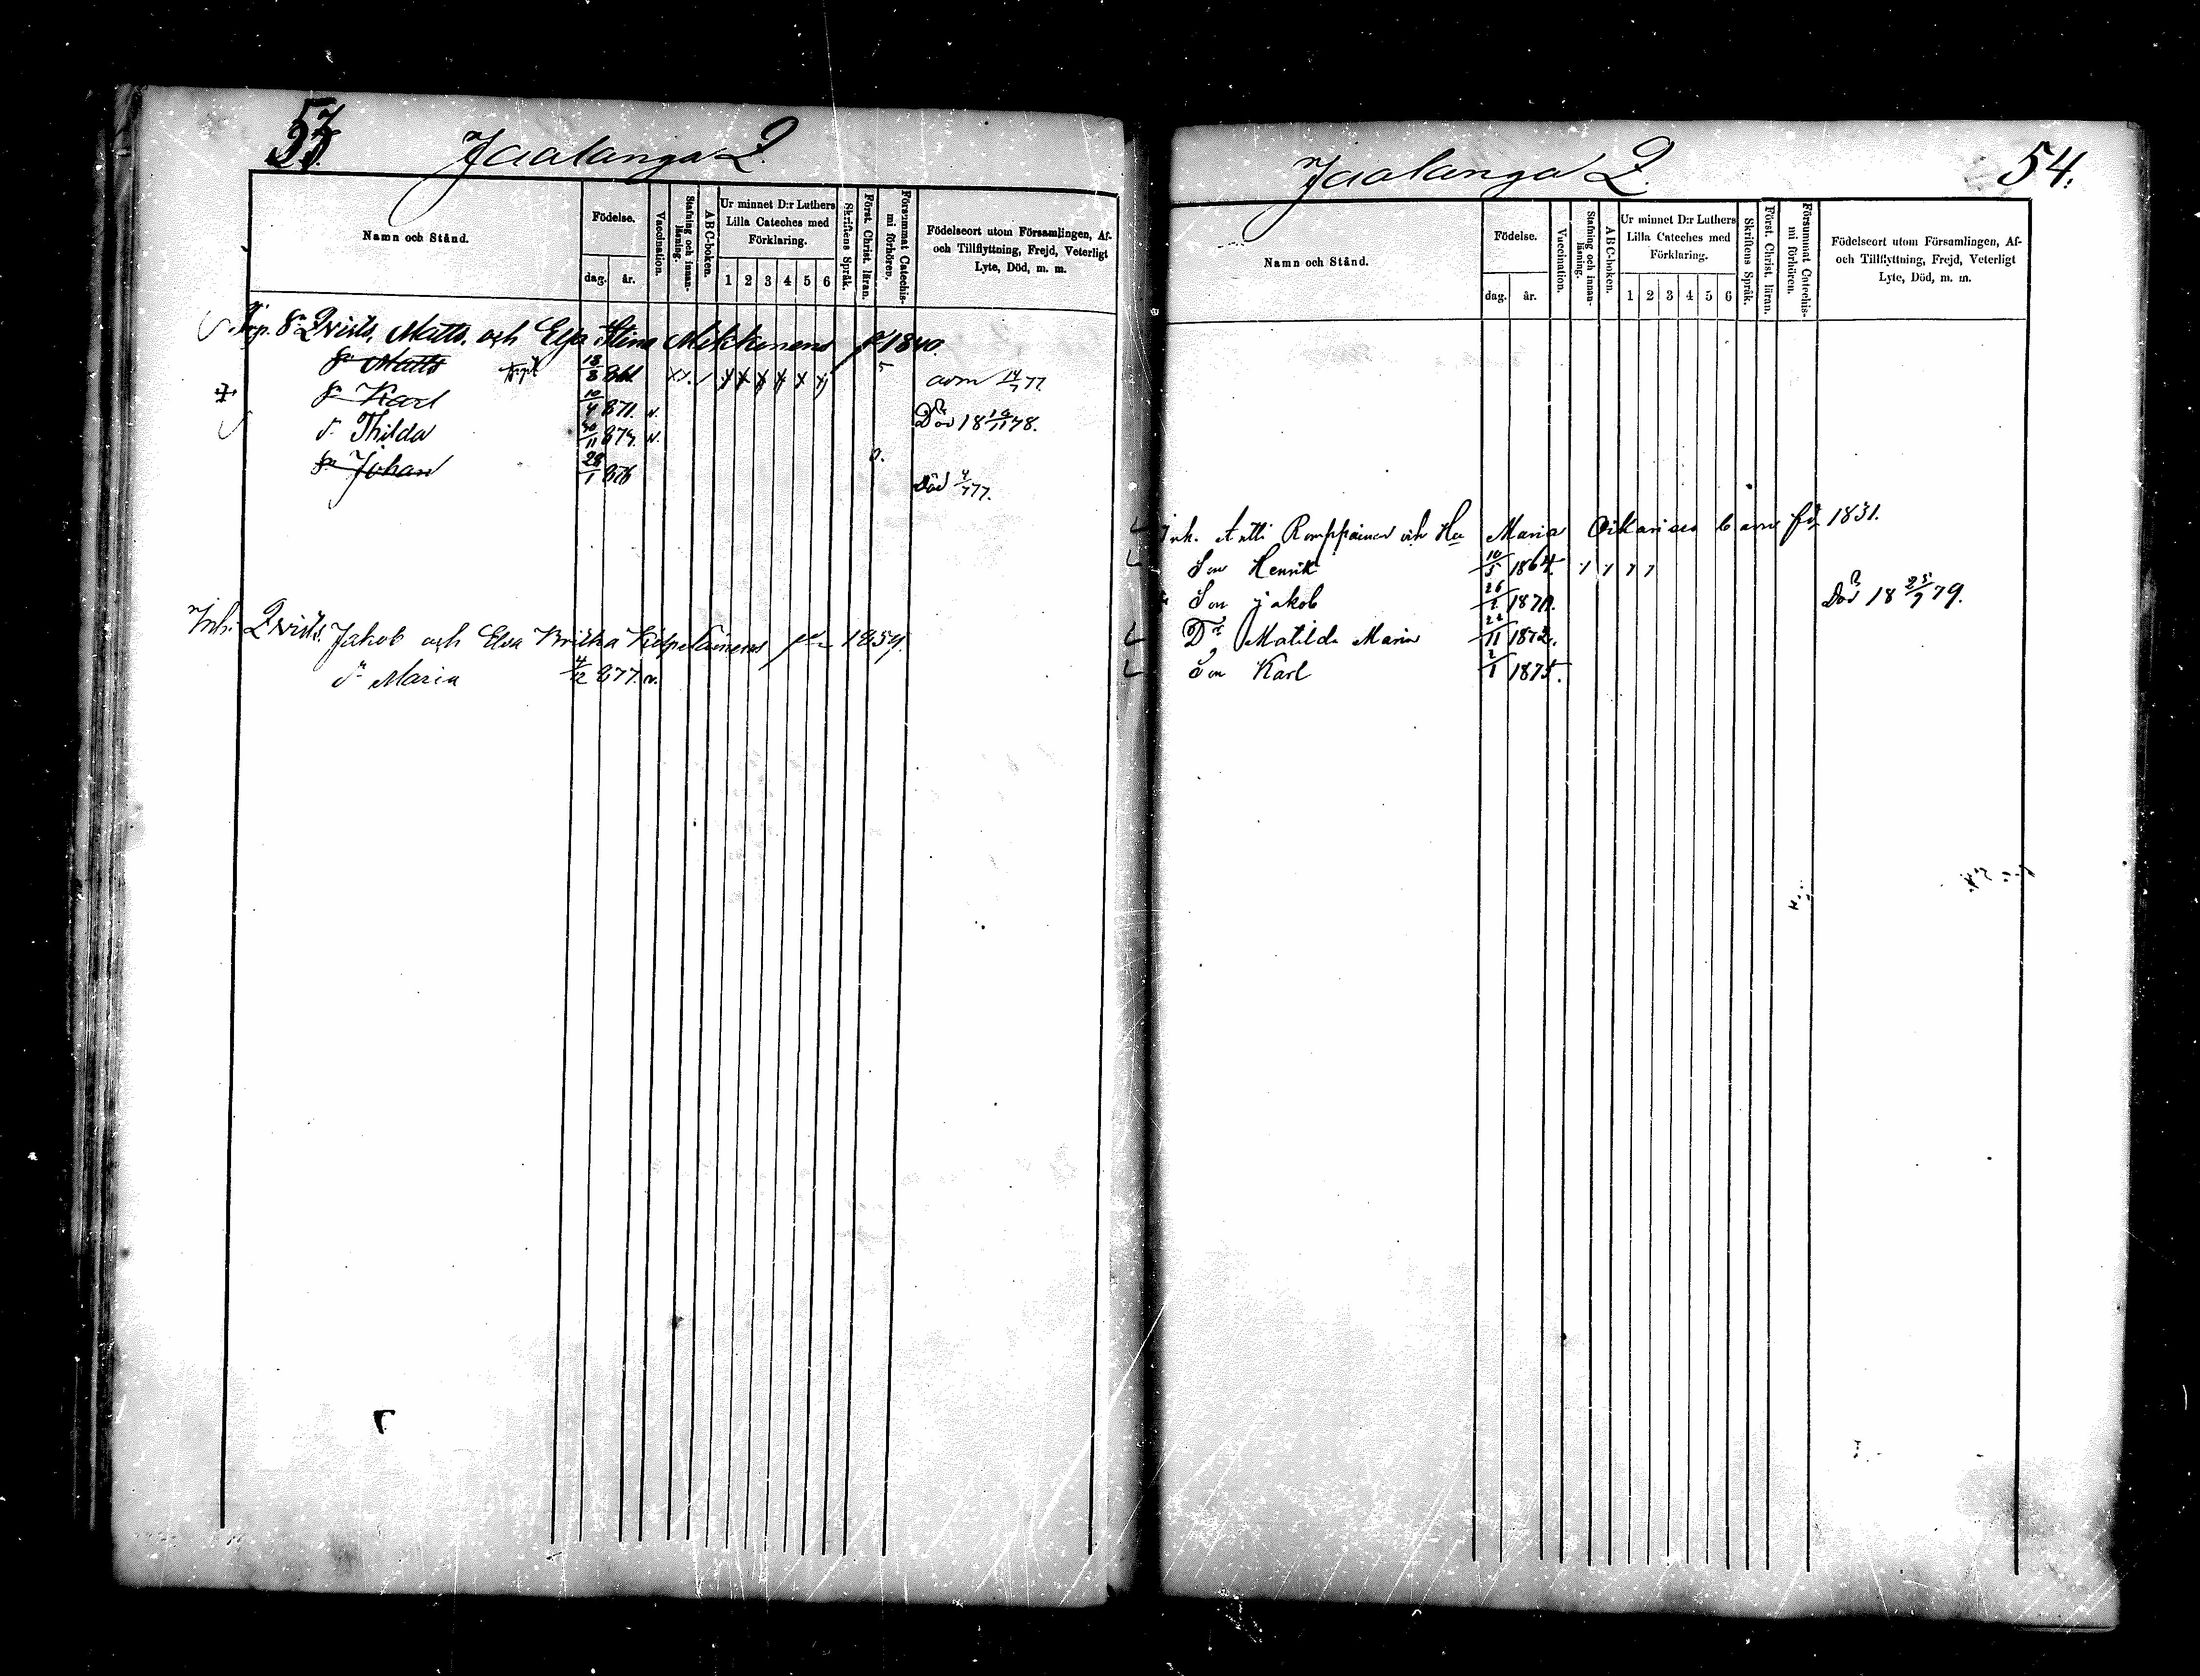 53
Jaalanga 2.
Namn och Stånd.
Födelse.
dag. år.
Vaccination.
Stafning och innanläsning.
ABC-boken.
Ur minnet D:r Luthers Lilla Cateches med Förklaring.
1 2 3 4 5 6
Skriftens Språk.
Först. Christ. läran.
Försummat Catechismi förhören.
Födelseort utom Församlingen, Af- och Tillflyttning, Frejd, Veterligt Lyte, Död, m. m.
Matts, och Elsa Stina Mikkonens 1840.
Sn Matts 18/8 861 adm 14/7 77.
Sn Karl 10/4 871. v. Död 18 19/11 78.
dr Thilda 30/11 874. v.
Sn Johan 28/1 876 Död 4/7 77.
Inh. Jakob och Elsa Briitta Kilpeläinens 1859.
dr Maria 4/12 877. v.
Jaalanga 2.
54.
Namn och Stånd.
Födelse.
dag. år.
Vaccination.
Stafning och innanläsning.
ABC-boken.
Ur minnet D:r Luthers Lilla Cateches med Förklaring.
1 2 3 4 5 6
Skriftens Språk.
Först. Christ. läran.
Försummat Catechismi förhören.
Födelseort utom Församlingen, Af- och Tillflyttning, Frejd, Veterligt Lyte, Död, m. m.
Inh. Antti Romppainen och Hu Maria Oikarisen barn från 1831.
Son Henrik 10/5 1864.
Son jakob 26/2 1870. Död 18 25/7 79.
Dr Matilda Maria 22/11 1872.
Son Karl 2/1 1875.